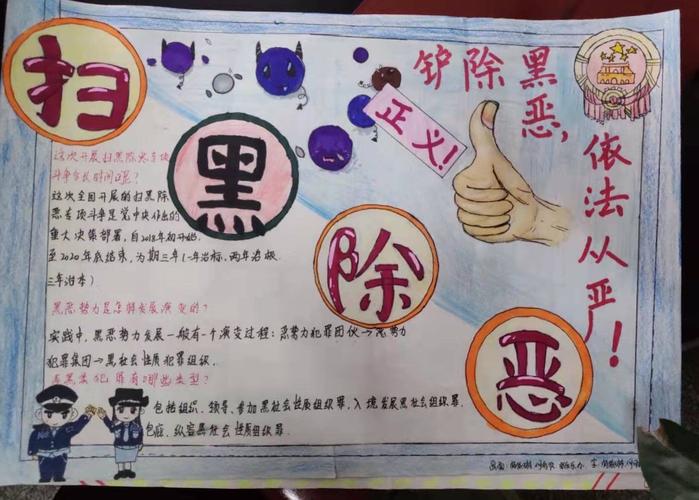 扫
黑
除
恶
铲除黑恶，
依法从严！
正义！
这次开展扫黑除恶专项
斗争多长时间呢？
这次全国开展的扫黑除
恶专项斗争是党中央作出的
重大决策部署，自2018年初开始，
至2020年底结束，为期三年（一年治标，两年治根，
三年治本）
黑恶势力是怎样发展演变的？
实践中，黑恶势力发展一般有一个演变过程：恶势力犯罪团伙→恶势力
犯罪集团→黑社会性质犯罪组织。
黑犯罪有哪些类型？
包括组织、领导、参加黑社会性质组织罪，入境发展黑社会组织罪，
包庇、纵容黑社会性质组织罪.